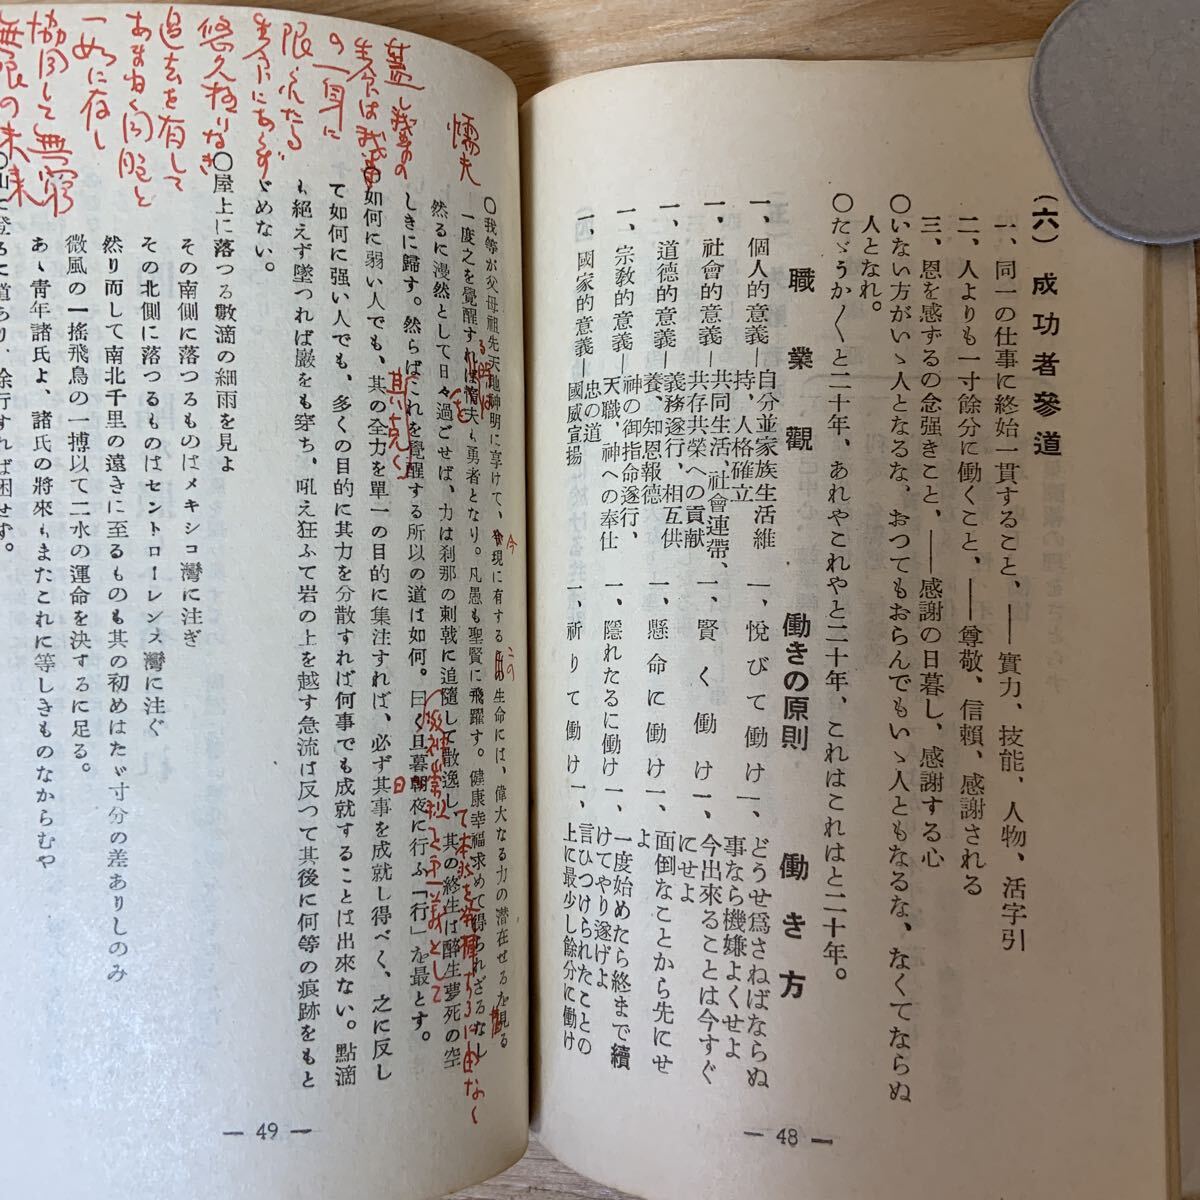 (六) 成功者參道
一、同一の仕事に終始一貫すること、——實力、技能、人物、活字引
二、人よりも一寸餘分に働くこと、——尊敬、信賴、感謝される
三、恩を感ずるの念强きこと、——感謝の日暮し、感謝する心
○いない方がいゝ人となるな、おつてもおらんでもいゝ人ともなるな、なくてならぬ
人となれ。
○たゞうか〱と二十年、あれやこれやと二十年、これはこれはと二十年。
職業觀
一、個人的意義—自分並家族生活維
持、人格確立
一、社會的意義—共同生活、社會連帶、
共存共榮への貢献
一、道德的意義—義務遂行、相互供
養、知恩報德
一、宗敎的意義—神の御指命遂行、
天職、神への奉仕
一、國家的意義—忠の道
國威宣揚
働きの原則
一、悅びて働け
一、賢く働け
一、懸命に働け
一、隱れたるに働け
一、祈りて働け
働き方
一、どうせ爲さねばならぬ
事なら機嫌よくせよ
一、今出來ることは今すぐ
にせよ
一、面倒なことから先にせ
よ
一、一度始めたら終まで續
けてやり遂げよ
一、言ひつけられたことの
上に最少し餘分に働け
— 48 —
懦夫
蓋し我等の
生命は我等
の一身に
限られたる
生命にあらず
悠久極りなき
過去を有して
あまねく同胞と
一如に在し
協同して無窮
無限の未来
○我等が父母祖先天地神明に享けて、今現に有するこの生命には、偉大なる力の潜在せるを見る
一度之を覺醒すれば懦夫も勇者となり。凡愚も聖賢に飛躍す。健康幸福求めて得られざるなし
然るに漫然として日々過ごせば、力は刹那の刺戟に追隨して散逸し、其の終生は醉生夢死の空
しきに歸す。然らばこれを覺醒する所以の道は如何。曰く旦暮朝夜に行ふ「行」を最とす。
○如何に弱い人でも、其の全力を單一の目的に集注すれば、必ず其事を成就し得べく、之に反し
て如何に强い人でも、多くの目的に其力を分散すれば何事でも成就することは出來ない。點滴
も絕えず墜つれば巖をも穿ち、吼え狂ふて岩の上を越す急流は反つて其後に何等の痕跡をもと
どめない。
○屋上に落つる數滴の細雨を見よ
その南側に落つるものはメキシコ灣に注ぎ
その北側に落つるものはセントローレンス灣に注ぐ
然り而して南北千里の遠きに至るものも其の初めはたゞ寸分の差ありしのみ
微風の一搖飛鳥の一搏以て二水の運命を決するに足る。
あゝ靑年諸氏よ、諸氏の將來もまたこれに等しきものなからむや
○山に登るに道あり、徐行すれば困せず。
— 49 —